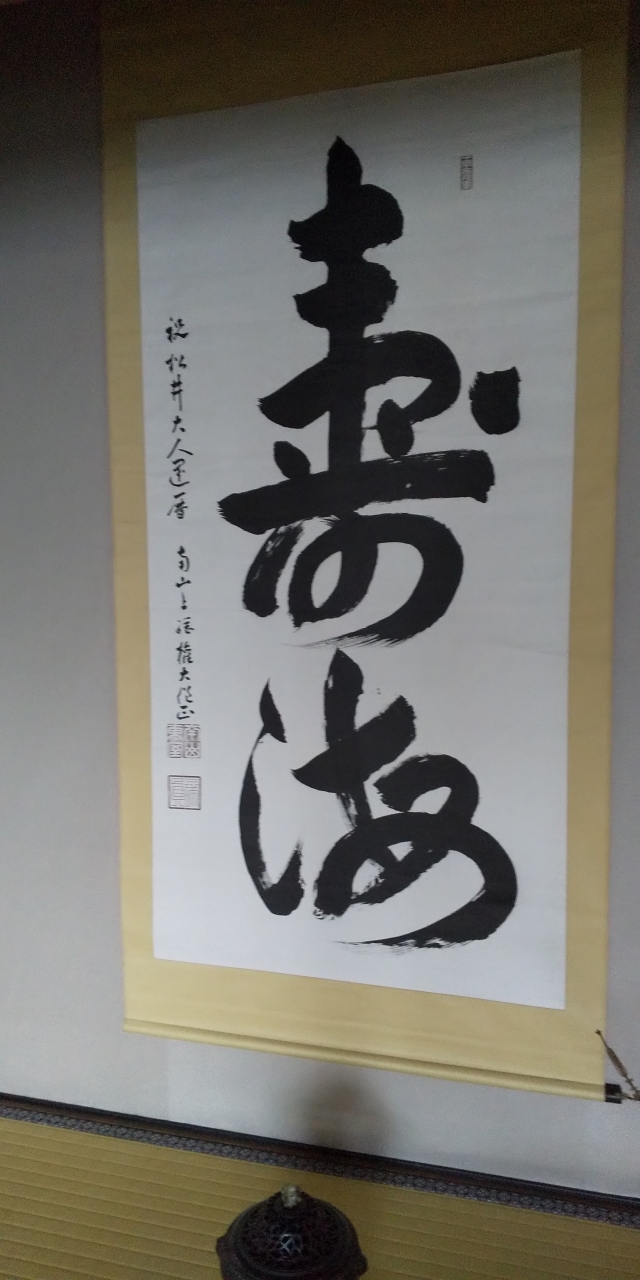 寿海
祝松井大人還暦 南山上勝権大僧正